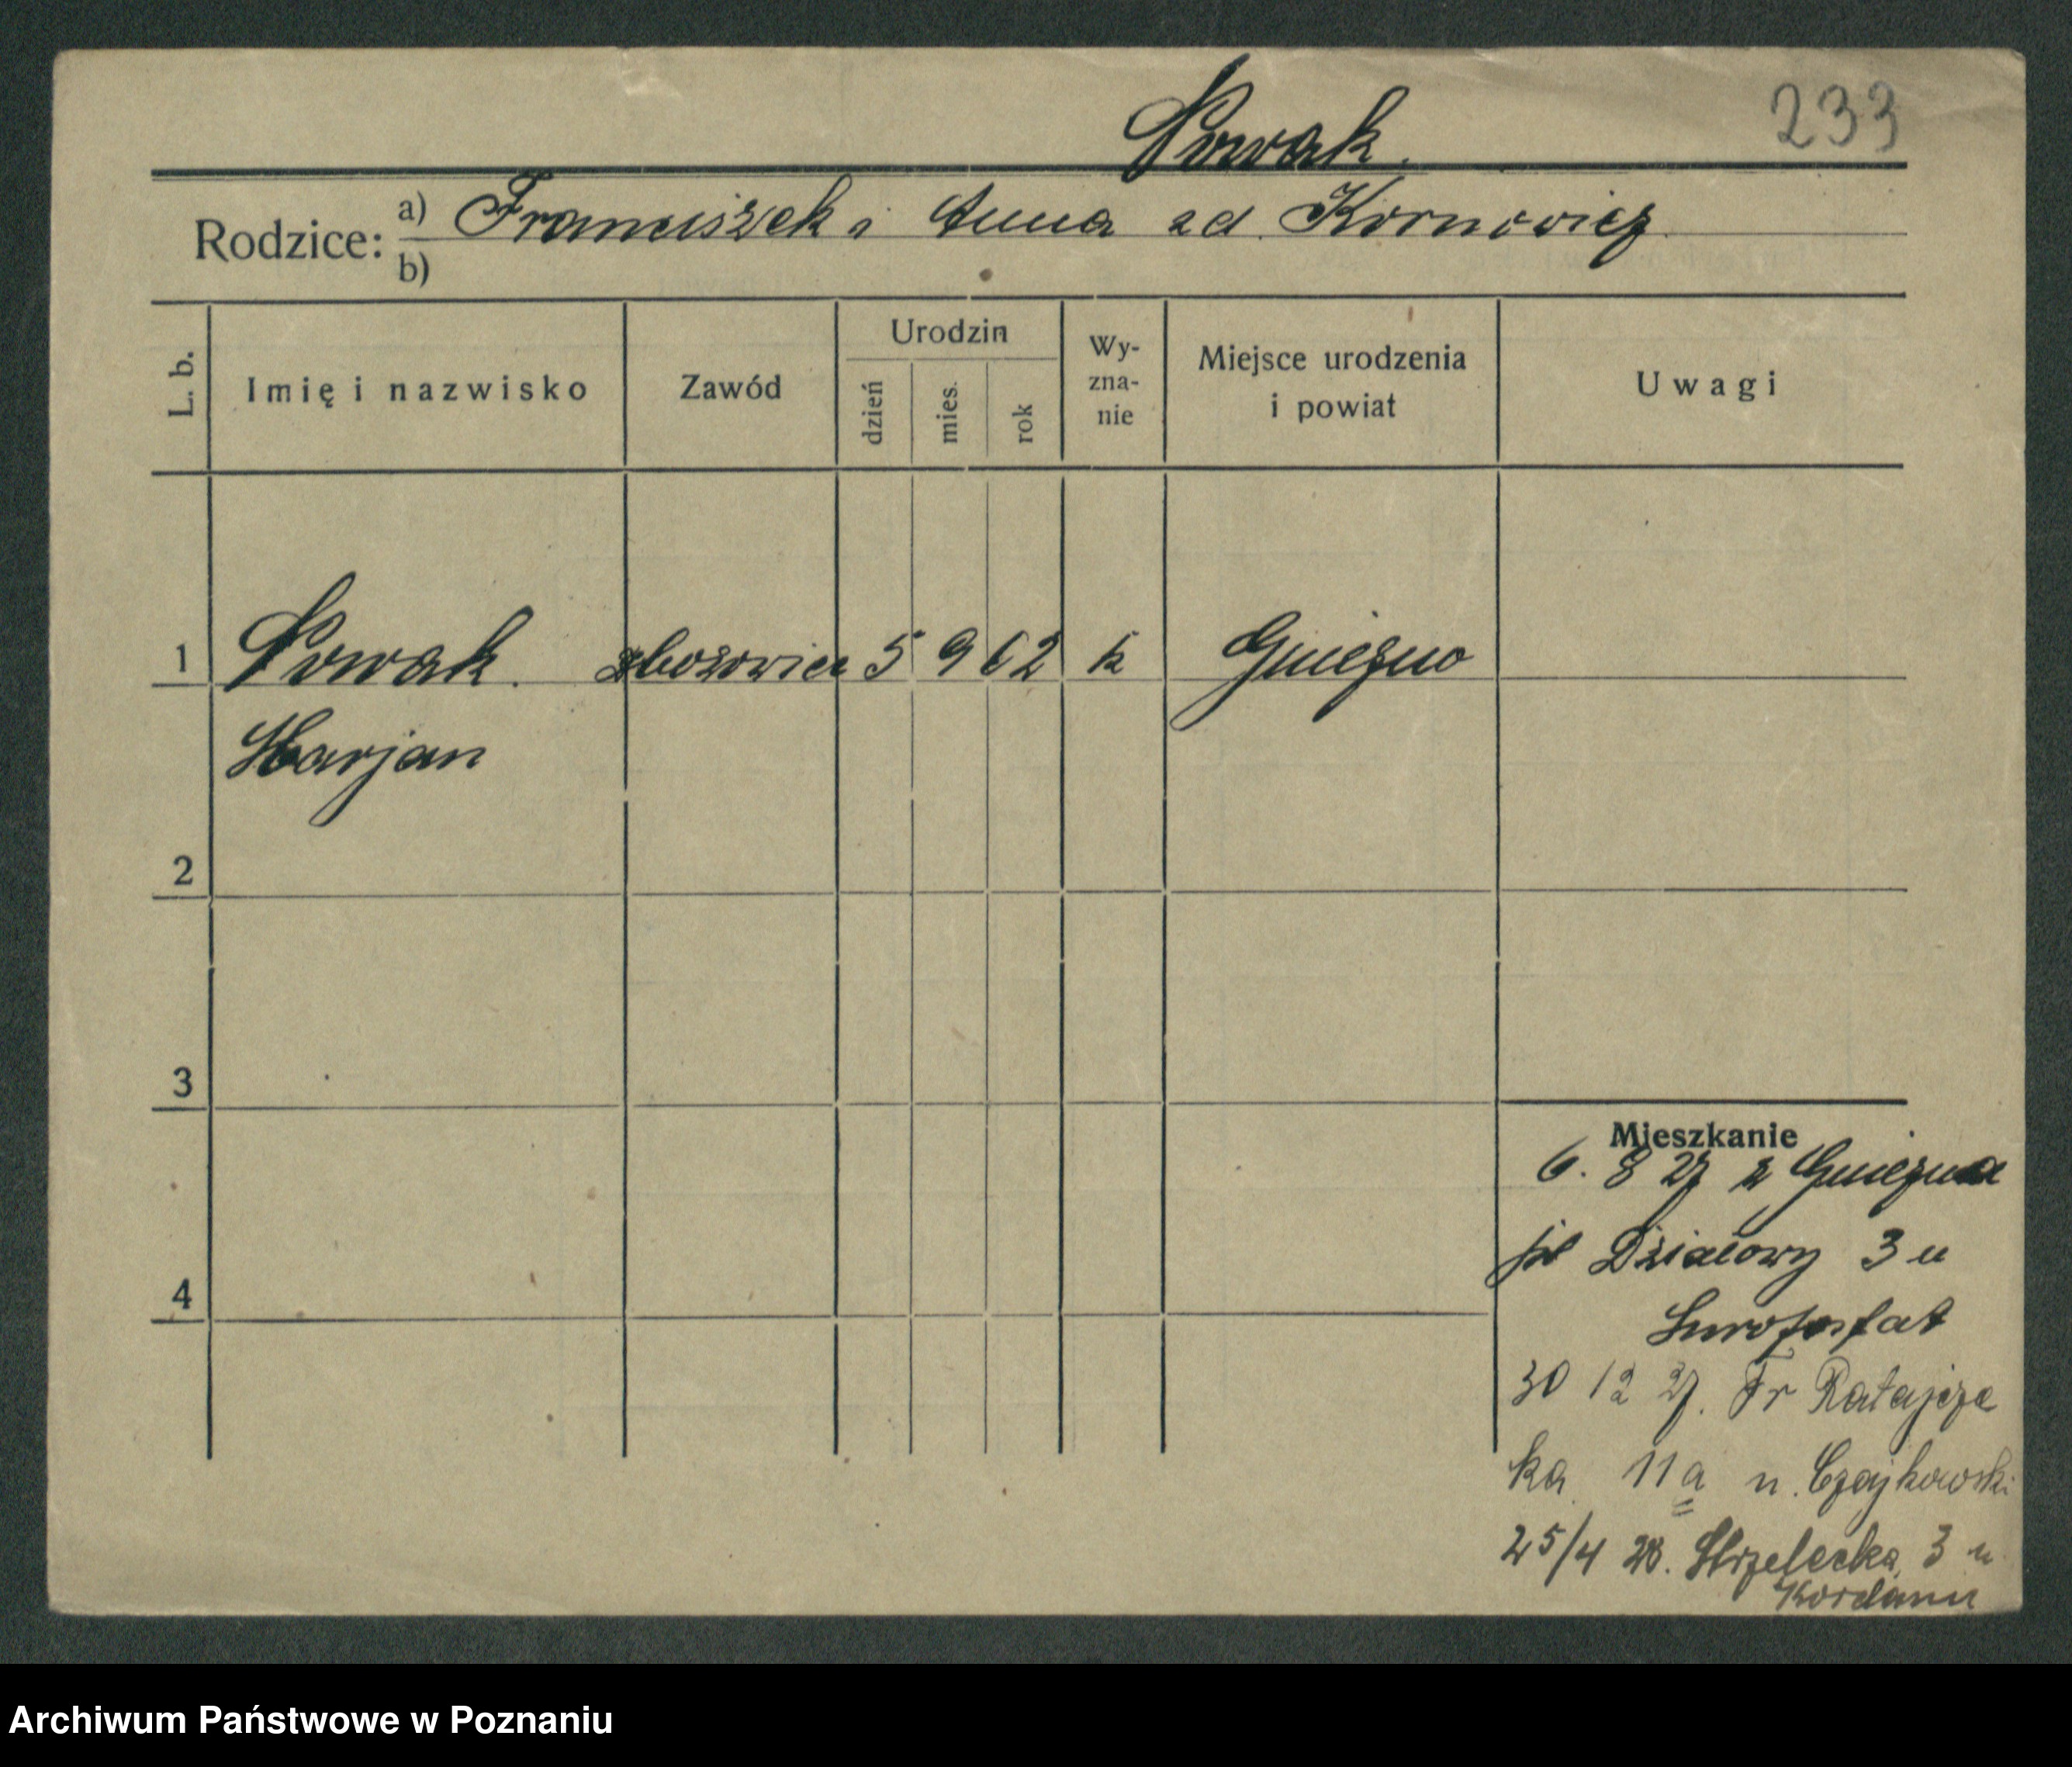 233
Nowak.
Rodzice: a) Franciszek i Anna zd. Kornowicz
b)
L. b. Imię i nazwisko Zawód Urodzin dzień mies. rok Wy-zna-nie Miejsce urodzenia i powiat Uwagi
1 Nowak. zbożowiec 5 9 02 k Gniezno
Marjan
2
3
4
Mieszkanie
6. 8 27 z Gniezna
pl Działowy 3 u
30 12 27. Fr Ratajcza
ka 11a u. Czajkowski
25/4 28. Strzelecka 3 u
Kordann
Archiwum Państwowe w Poznaniu